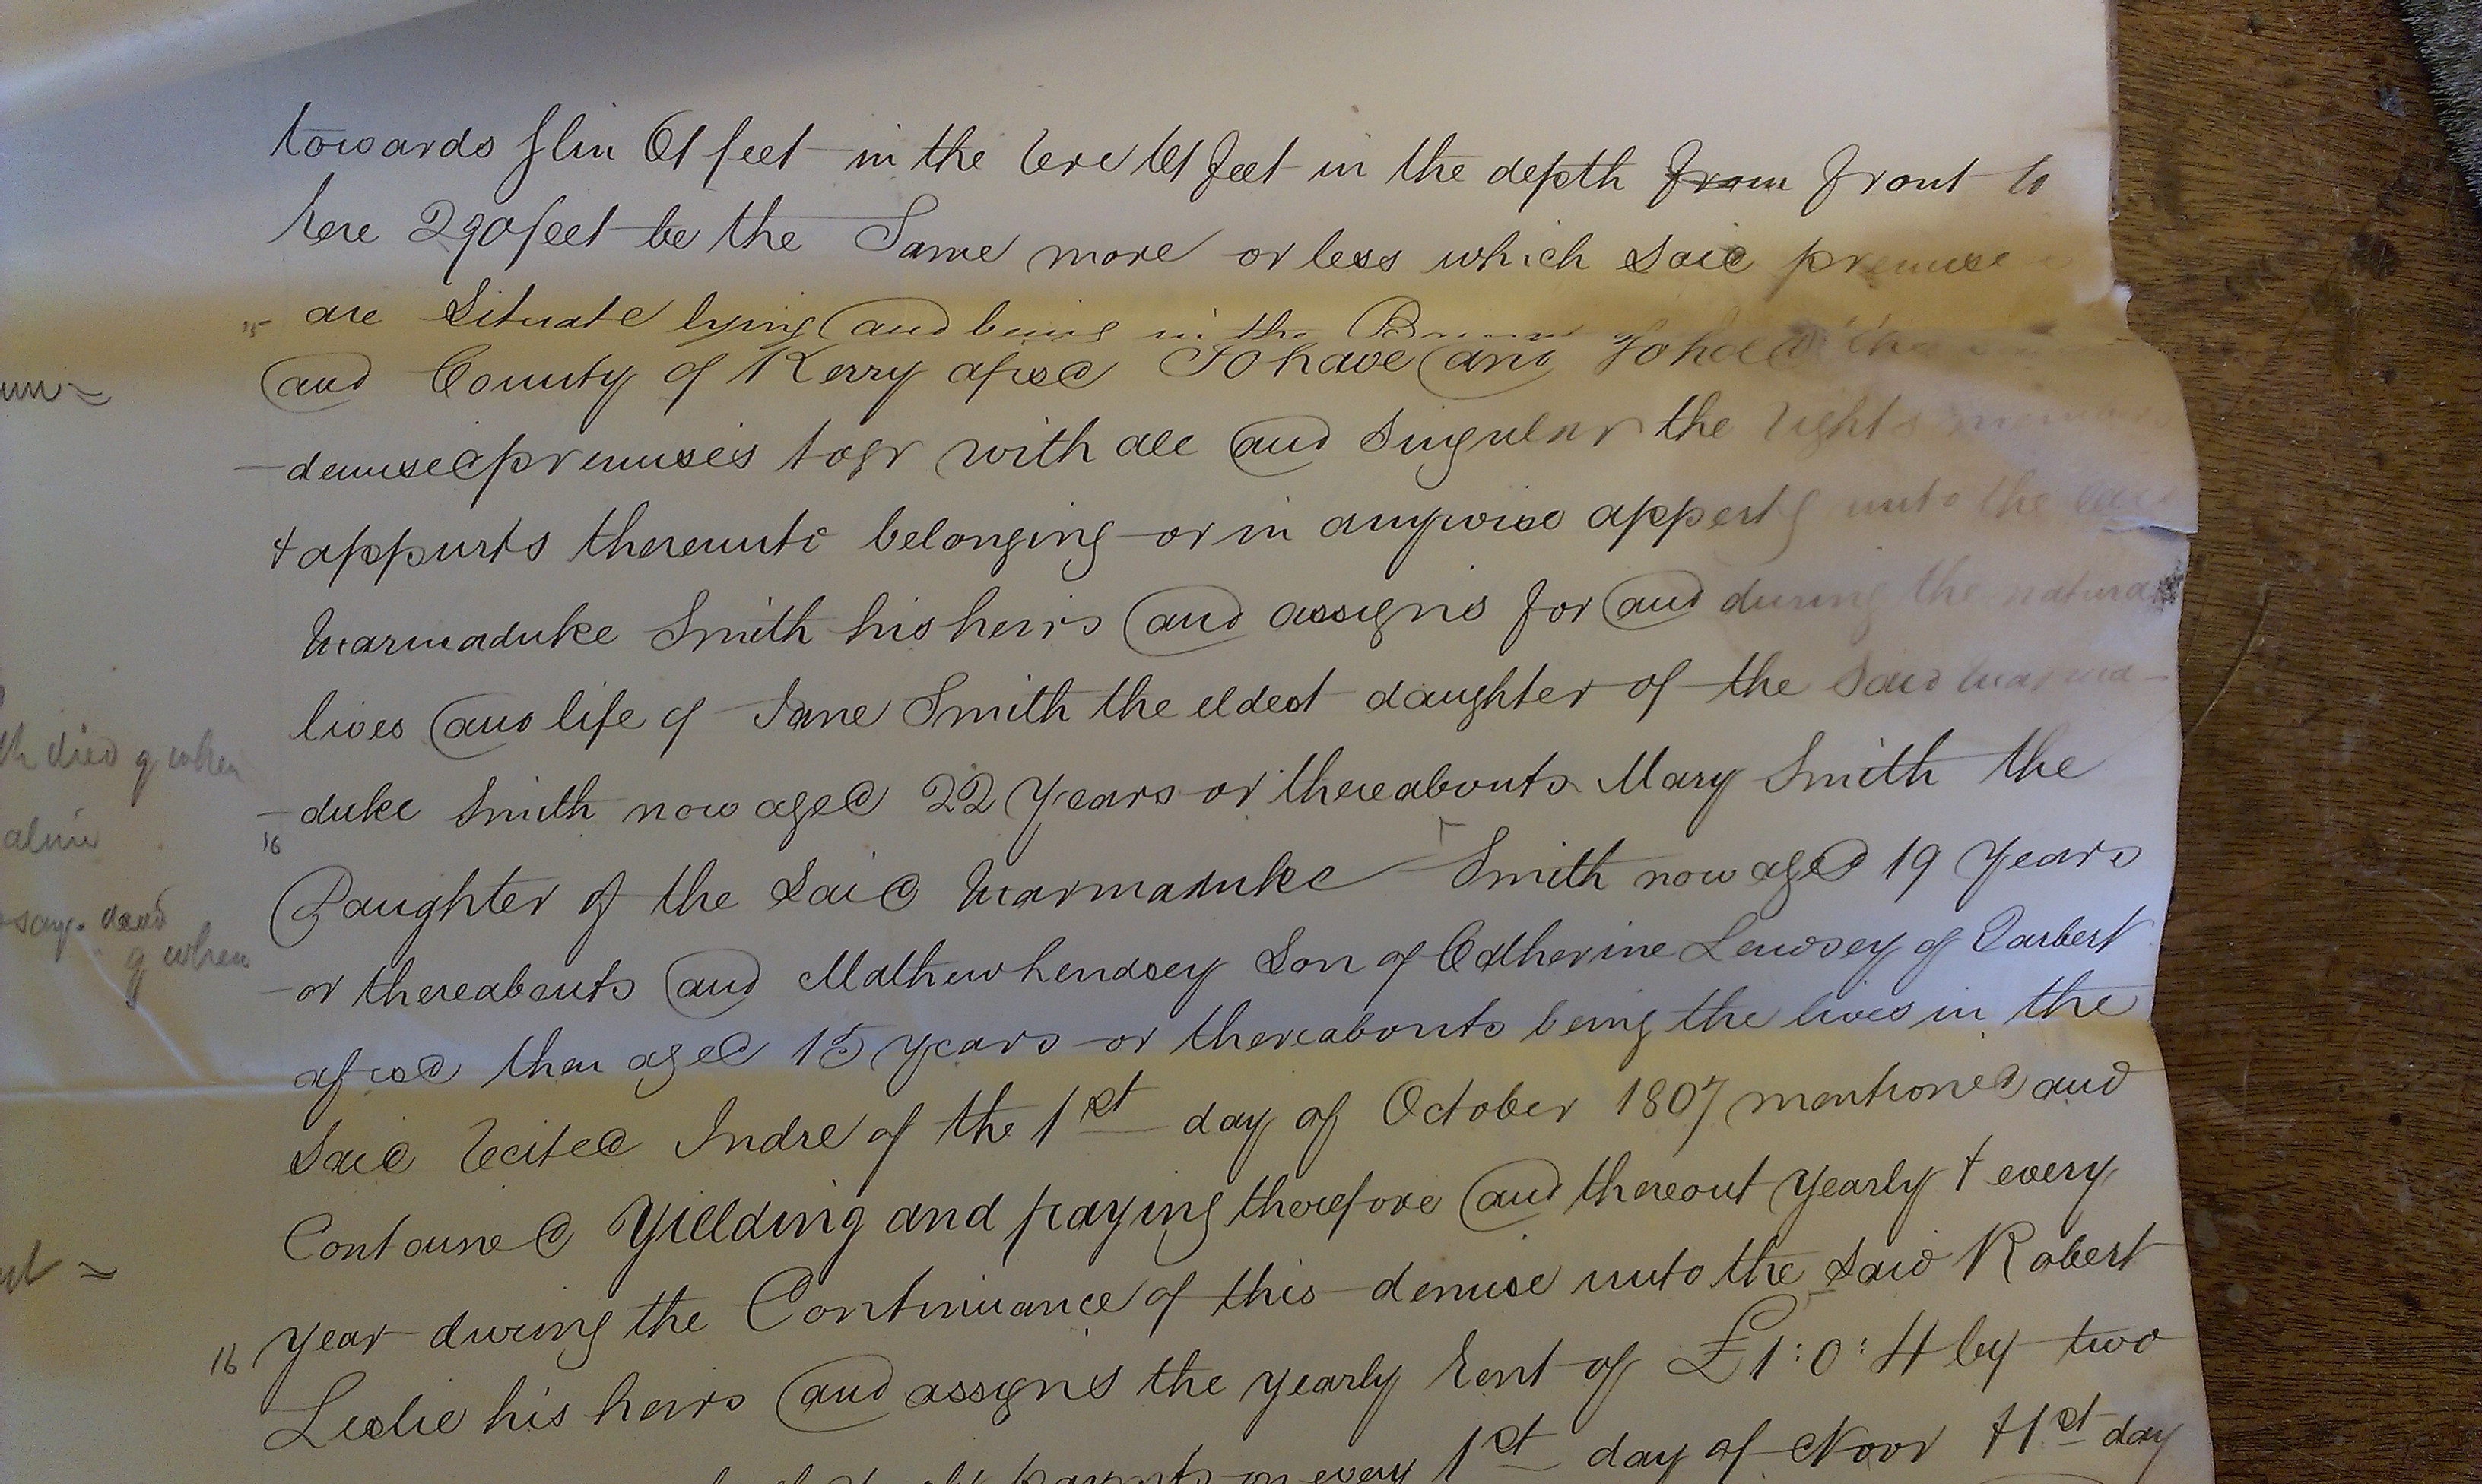 towards Glin 61 feet in the rere 61 feet in the depth from front to
rere 290 feet be the Same more or less which Said premises
15 are Situate lying and being in the
um = and County of Kerry afsd To have and To hold the
demised premises togr with all and Singular the rights
+ appurts thereunto belonging or in anywise appertg unto the said
Marmaduke Smith his heirs and assigns for and during the natural
lives and life of Jane Smith the eldest daughter of the Said Marma-
th died q when
duke Smith now aged 22 Years or thereabouts Mary Smith the
16
Daughter of the Said Marmaduke Smith now aged 19 Years
say. dead
q when
or thereabouts and Mathew hendsey Son of Catherine Lendsey of Tarbert
afsed then aged 15 years or thereabouts being the lives in the
Said recited Indre of the 1st day of October 1807 mentioned and
Contained Yielding and paying therefore and thereout Yearly + every
=
year during the Continuance of this demise unto the Said Robert
16
Leslie his heirs and assigns the yearly rent of £1:0:4 by two
on every 1st day of Novr + 1st day